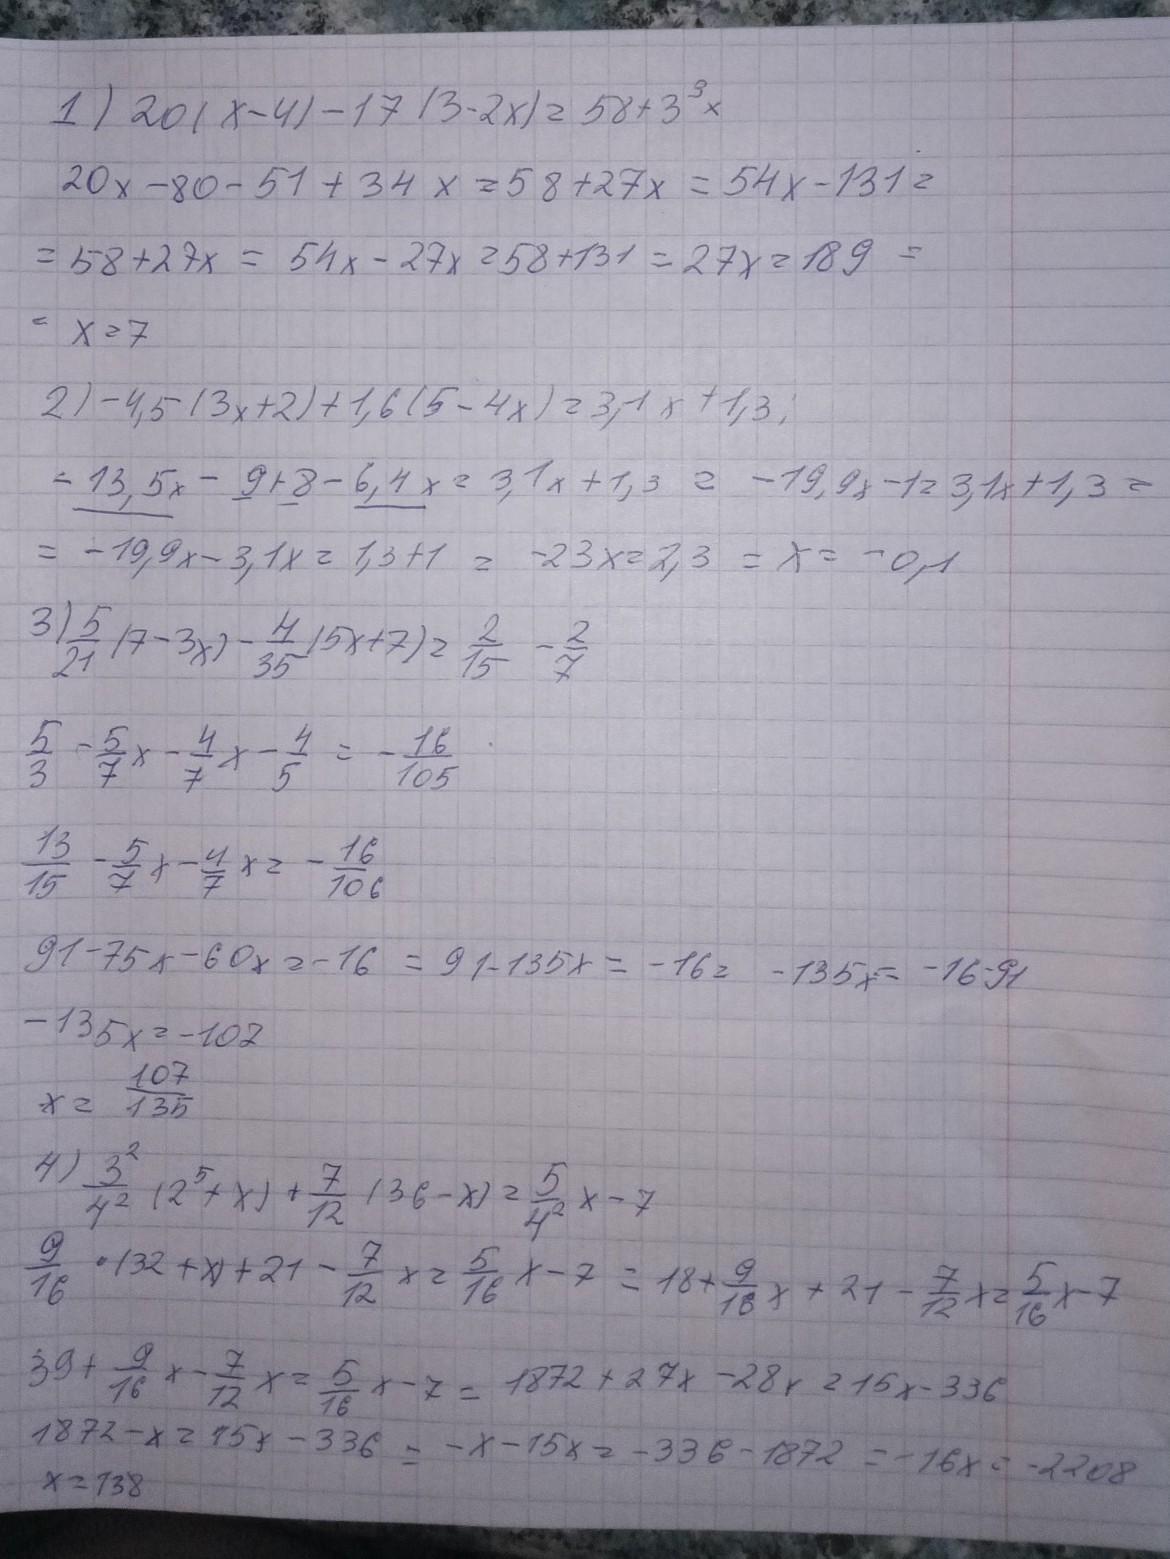 1) 20(x-4)-17(3-2x)=58+3³x
20x-80-51+34x=58+27x=54x-131=
=58+27x=54x-27x=58+131=27x=189=
=x=7
2) -4,5(3x+2)+1,6(5-4x)=3,1x+1,3;
-13,5x-9+8-6,4x=3,1x+1,3=-19,9x-1=3,1x+1,3=
=-19,9x-3,1x=1,3+1=-23x=2,3=x=-0,1
3) 5/21(7-3x)-4/35(5x+7)=2/15-2/7
5/3-5/7x-4/7x-4/5=-16/105
13/15-5/7x-4/7x=-16/106
91-75x-60x=-16=91-135x=-16=-135x=-16-91
-135x=-107
x=107/135
4) 3²/4²(2⁵+x)+7/12(36-x)=5/4²x-7
9/16·(32+x)+21-7/12x=5/16x-7=18+9/16x+21-7/12x=5/16x-7
39+9/16x-7/12x=5/16x-7=1872+27x-28x=15x-336
1872-x=15x-336=-x-15x=-336-1872=-16x=-2208
x=138